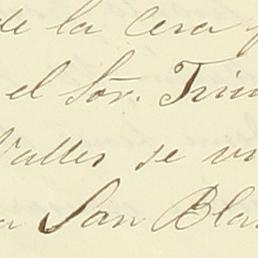 de la Cera
el Sor. Trin
Valles se
San Blas